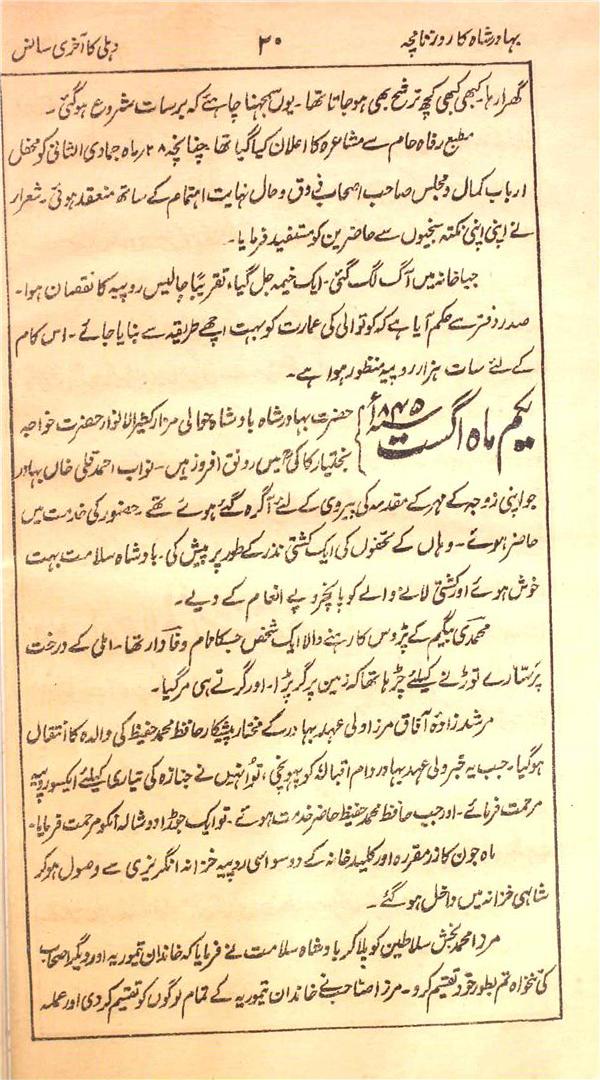 بہادر شاہ کا روزنامچہ ۲۰ دہلی کا آخری سانس
گھرا رہا۔ کبھی کبھی کچھ ترشح بھی ہو جاتا تھا۔ یوں سمجھنا چاہئے کہ برسات شروع ہو گئی۔
مطبع رفاہ عام سے مشاعرہ کا اعلان کیا گیا تھا چنانچہ ۲۸؍ ماہ جمادی الثانی کو محفل
ارباب کمال و مجلس صاحب اصحاب ذوق و حال نہایت اہتمام کے ساتھ منعقد ہوئی۔ شعراء
نے اپنی اپنی نکتہ سنجیوں سے حاضرین کو مستفید فرمایا۔
جیا خانہ میں آگ لگ گئی۔ ایک خیمہ جل گیا، تقریباً چالیس روپیہ کا نقصان ہوا۔
صدر دفتر سے حکم آیا ہے کہ کوتوالی کی عمارت کو بہت اچھے طریقہ سے بنایا جائے۔ اس کام
کے لئے سات ہزار روپیہ منظور ہوا ہے۔
یکم ماہ اگست ۱۸۴۵ء حضرت بہادر شاہ بادشاہ حوالی مزار کثیر الانوار حضرت خواجہ
بختیار کاکیؒ میں رونق افروز ہیں۔ نواب احمد قلی خاں بہادر
جو اپنی زوجہ کے مہر کے مقدمہ کی پیروی کے لئے آگرہ گئے ہوئے تھے۔ حضور کی خدمت میں
حاضر ہوئے۔ وہاں کے تحفوں کی ایک کشتی نذر کے طور پر پیش کی۔ بادشاہ سلامت بہت
خوش ہوئے اور کشتی لانے والے کو پانچ روپے انعام کے دیے۔
محمدی بیگم کے پڑوس کا رہنے والا ایک شخص جسکا نام وفادار تھا۔ املی کے درخت
پر کتارے توڑنے کیلئے چڑھا تھا کہ زمین پر گر پڑا۔ اور گرتے ہی مر گیا۔
مرشد زادۂ آفاق مرزا ولی عہد بہادر کے مختار پیشکار حافظ محمد حفیظ کی والدہ کا انتقال
ہو گیا۔ جب یہ خبر ولی عہد بہادر دام اقبالہٗ کو پہونچی، تو انہیں نے جنازہ کی تیاری کیلئے ایکسو روپیہ
مرحمت فرمائے۔ اور جب حافظ محمد حفیظ حاضر خدمت ہوئے۔ تو ایک جوڑا دوشالہ انکو مرحمت فرمایا۔
ماہ جون کا زر مقررہ اور کلید خانہ کے دو سو اسی روپیہ خزانہ انگریزی سے وصول ہو کر
شاہی خزانہ میں داخل ہو گئے۔
مرزا محمد بخش سلاطین کو بلا کر بادشاہ سلامت نے فرمایا کہ خاندان تیموریہ اور دیگر اصحاب
کی تنخواہ تم بطور خود تقسیم کرو۔ مرزا صاحب نے خاندان تیموریہ کے تمام لوگوں کو تقسیم کر دی اور عملہ